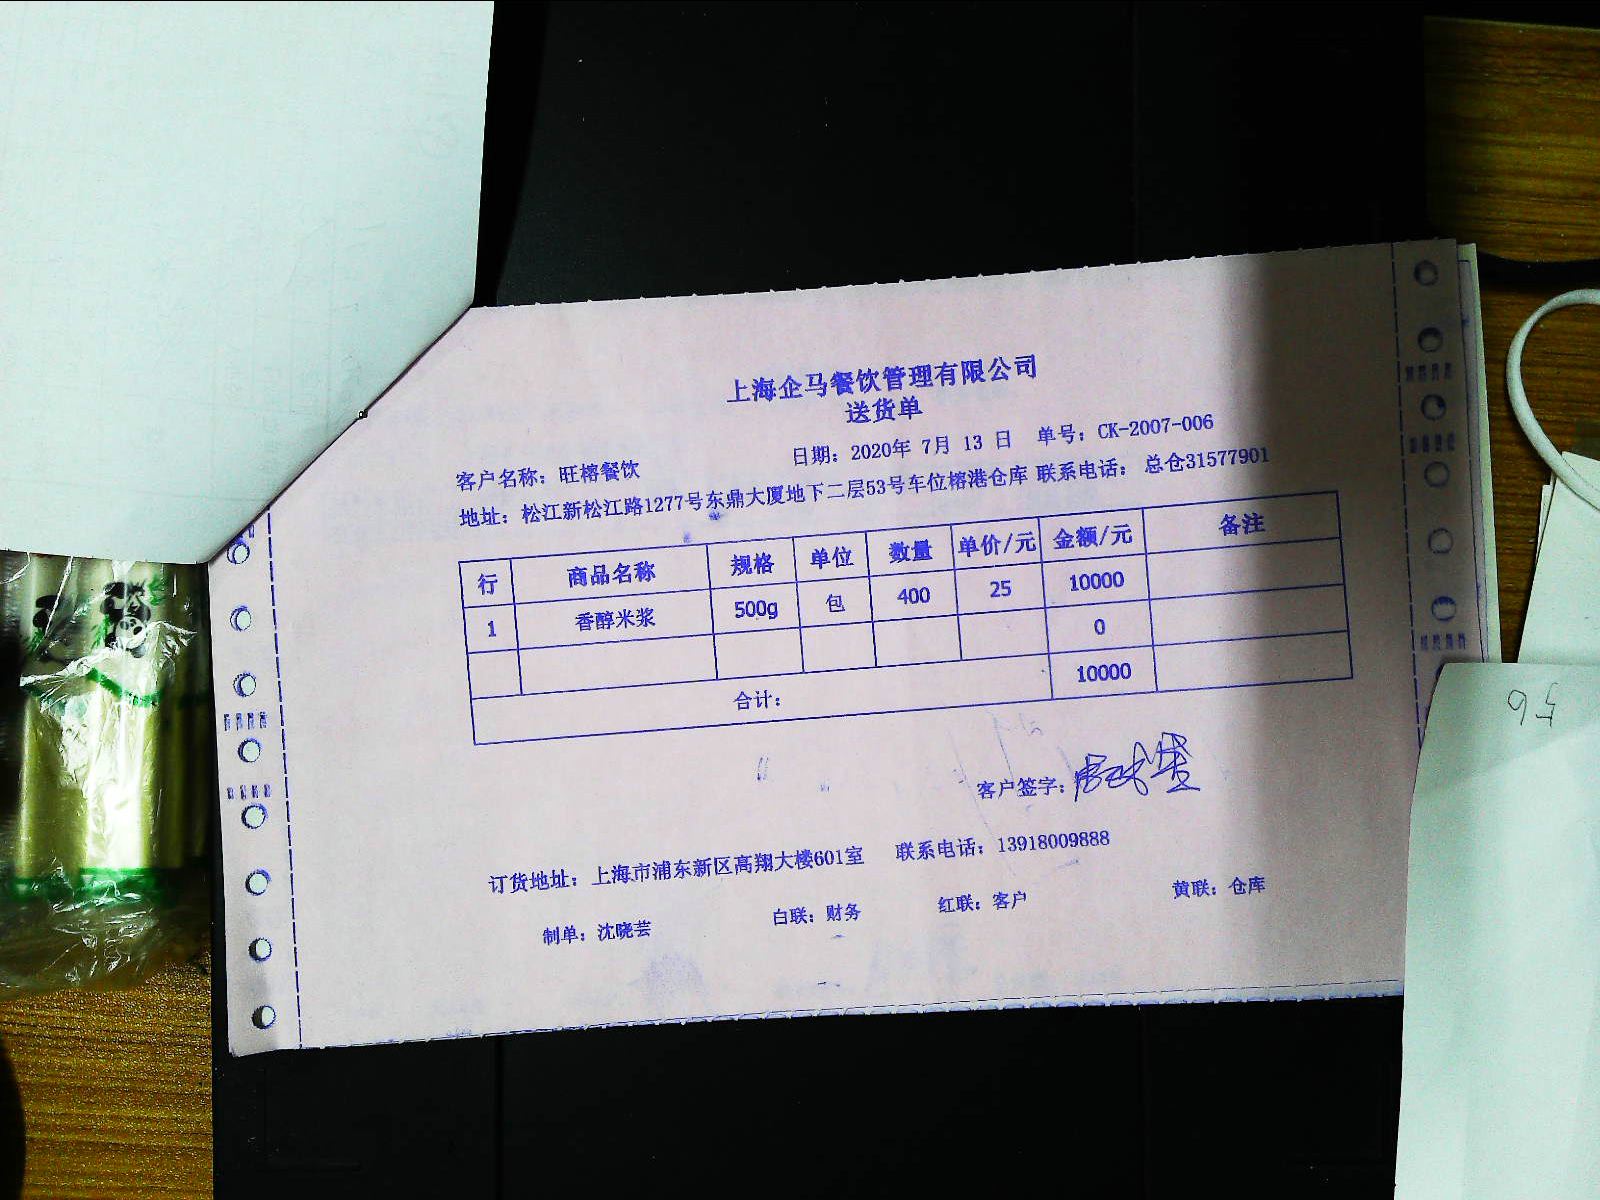 上海企马餐饮管理有限公司
送货单
日期：2020年 7月 13 日 单号：CK-2007-006
客户名称：旺榕餐饮
地址：松江新松江路1277号东鼎大厦地下二层53号车位榕港仓库 联系电话： 总仓31577901
行 商品名称 规格 单位 数量 单价/元 金额/元 备注
1 香醇米浆 500g 包 400 25 10000
0
合计： 10000
客户签字：
订货地址：上海市浦东新区高翔大楼601室 联系电话：13918009888
制单：沈晓芸 白联：财务 红联：客户 黄联：仓库